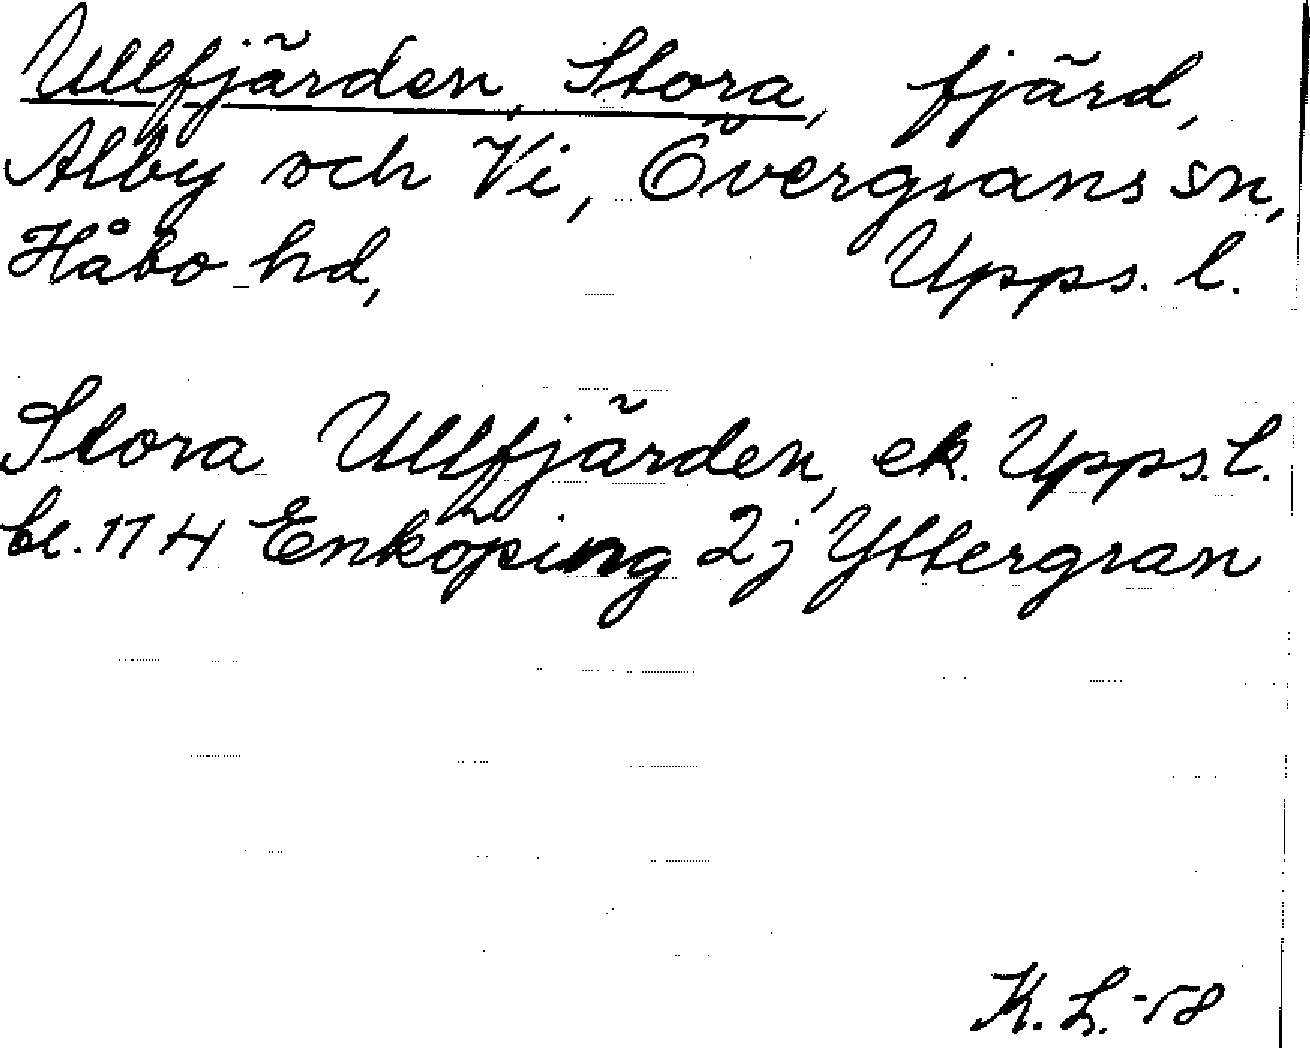 Ullfjärden, Stora, fjärd,
Alby och Vi, Övergrans sn,
Håbo hd, Upps. l.
Stora Ullfjärden, ek. Upps. l.
bl. 114 Enköping 2j Yttergran
K. L. -58